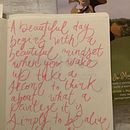 A beautiful day
begins with a
beautiful mindset
when you wake
up take a
second to think
about what a
privilege it is
simply to be alive